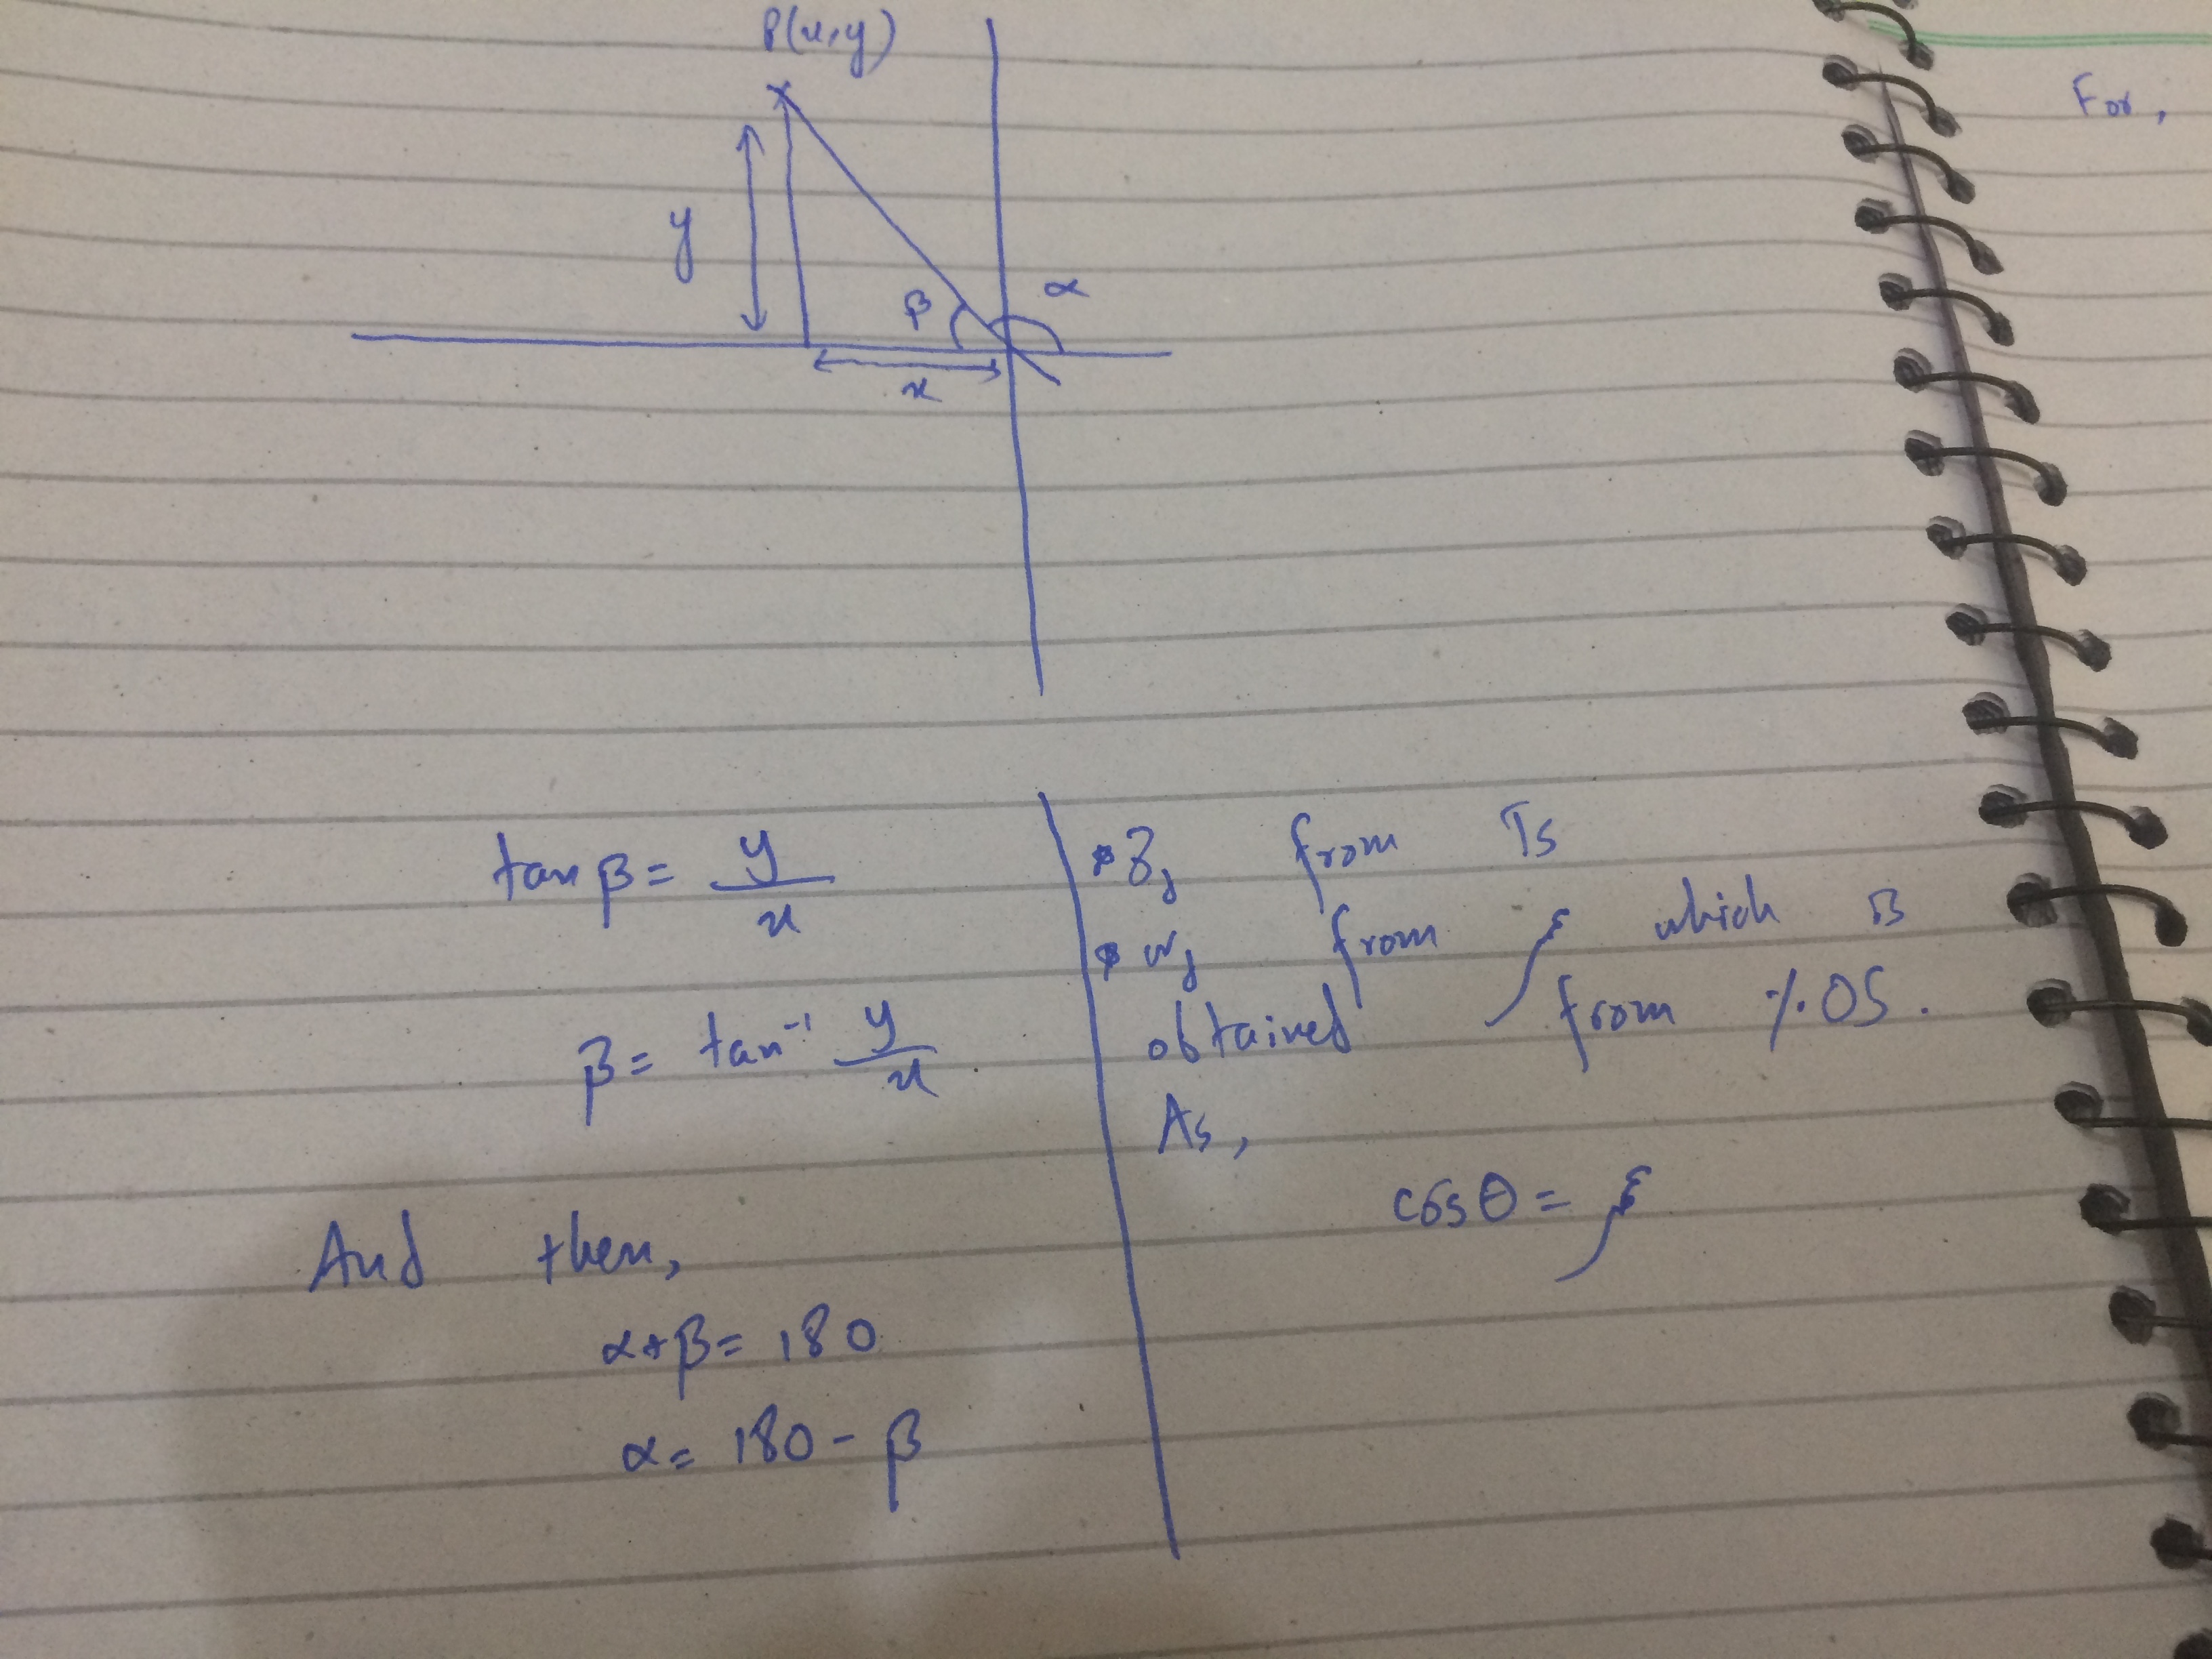 P(x,y)
For,
y
β
α
x
tan β = y/x
β = tan⁻¹ y/x
And then,
α+β = 180
α = 180 - β
from Ts
from ξ which is
obtained from %OS.
As,
cosθ = ξ